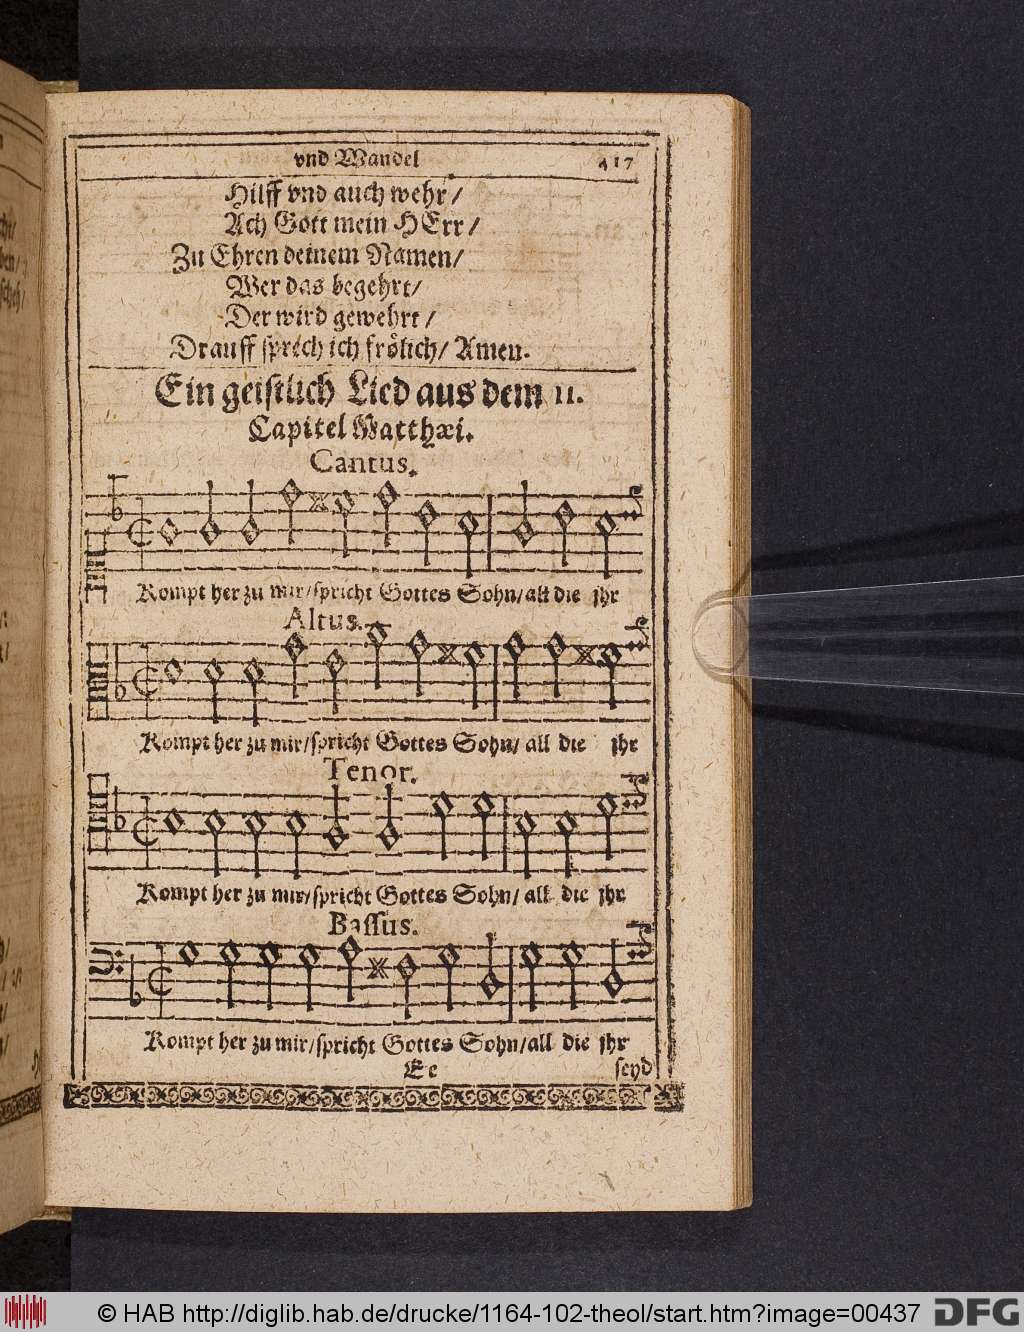 vnd Wandel 417
Hilff vnd auch wehr/
Ach Gott mein HErr/
Zu Ehren deinem Namen/
Wer das begehrt/
Der wird gewehrt/
Drauff sprech ich frölich/ Amen.
Ein geistlich Lied aus dem 11.
Capitel Matthæi.
Cantus.
Kompt her zu mir/spricht Gottes Sohn/all die jhr
Altus.
Kompt her zu mir/spricht Gottes Sohn/ all die jhr
Tenor.
Kompt her zu mir/spricht Gottes Sohn/ all die jhr
Bassus.
Kompt her zu mir/spricht Gottes Sohn/all die jhr
Ee seyd
© HAB http://diglib.hab.de/drucke/1164-102-theol/start.htm?image=00437 DFG